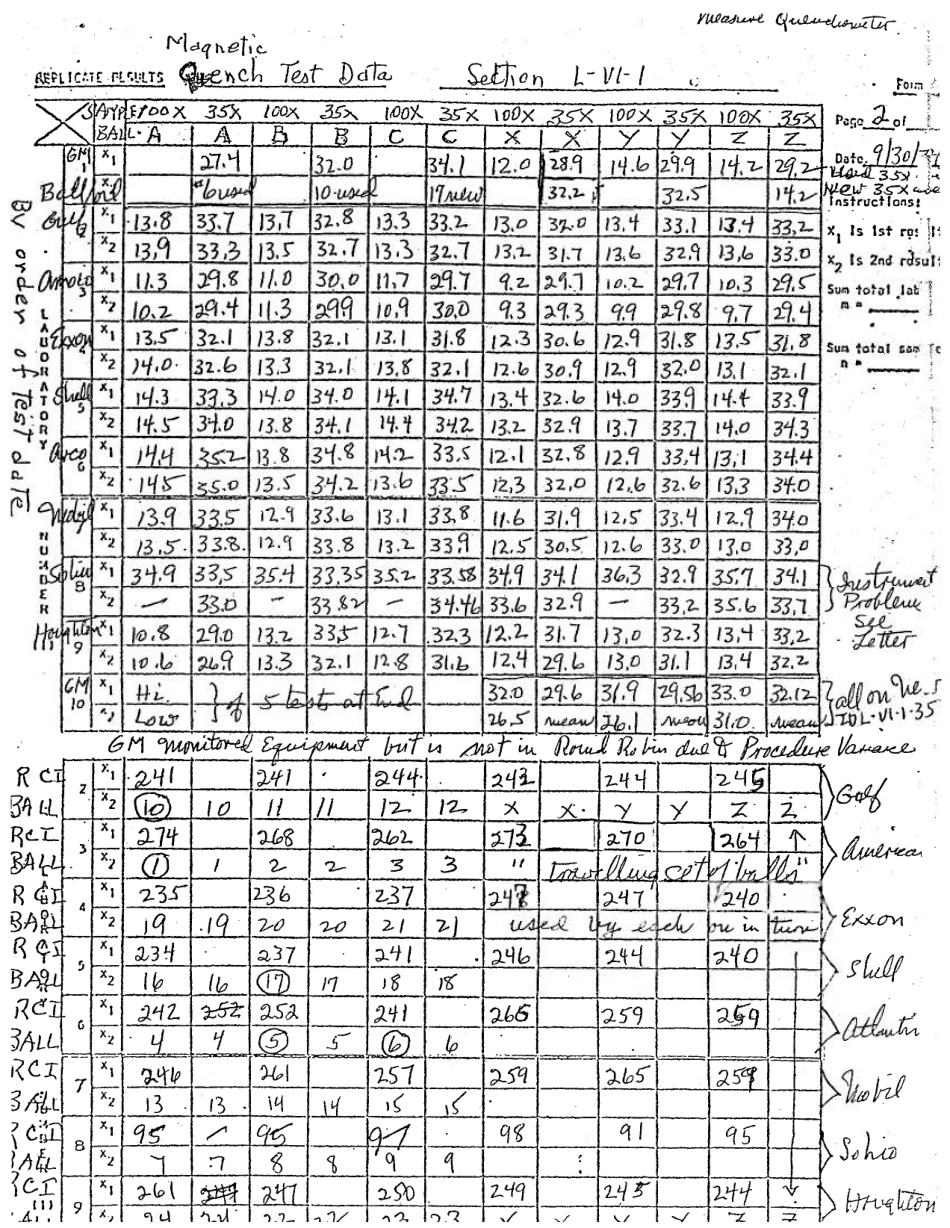 Measure Quenchometer
Magnetic
REPLICATE RESULTS Quench Test Data Section L-VI-1
Form
SAMPLE 100X 35X 100X 35X 100X 35X 100X 35X 100X 35X 100X 35X
BALL- A A B B C C X X Y Y Z Z
Page 2 of
GM 1 x1 27.4 32.0 34.1 12.0 28.9 14.6 29.9 14.2 29.2
Date 9/30/
Used 35X
Ball/oil *6 used 10-used 17 new 32.2 32.5 14.2
New 35X
Instructions:
By order of Test date
LABORATORY NUMBER
Gulf 2 x1 13.8 33.7 13.7 32.8 13.3 33.2 13.0 32.0 13.4 33.1 13.4 33.2
x1 is 1st
x2 13.9 33.3 13.5 32.7 13.3 32.7 13.2 31.7 13.6 32.9 13.6 33.0
x2 is 2nd result
Amoco 3 x1 11.3 29.8 11.0 30.0 11.7 29.7 9.2 29.7 10.2 29.7 10.3 29.5
Sum total lab
m =
x2 10.2 29.4 11.3 299 10.9 30.0 9.3 29.3 9.9 29.8 9.7 29.4
Exxon x1 13.5 32.1 13.8 32.1 13.1 31.8 12.3 30.6 12.9 31.8 13.5 31.8
Sum total sam
n =
x2 14.0 32.6 13.3 32.1 13.8 32.1 12.6 30.9 12.9 32.0 13.1 32.1
Shell 5 x1 14.3 33.3 14.0 34.0 14.1 34.7 13.4 32.6 14.0 33.9 14.4 33.9
x2 14.5 34.0 13.8 34.1 14.4 34.2 13.2 32.9 13.7 33.7 14.0 34.3
Arco 6 x1 14.4 35.2 13.8 34.8 14.2 33.5 12.1 32.8 12.9 33.4 13.1 34.4
x2 14.5 35.0 13.5 34.2 13.6 33.5 12.3 32.0 12.6 32.6 13.3 34.0
Mobil x1 13.9 33.5 12.9 33.6 13.1 33.8 11.6 31.9 12.5 33.4 12.9 34.0
x2 13.5 33.8 12.9 33.8 13.2 33.9 12.5 30.5 12.6 33.0 13.0 33.0
Sohio 8 x1 34.9 33.5 35.4 33.35 35.2 33.58 34.9 34.1 36.3 32.9 35.7 34.1
x2 — 33.0 — 33.82 — 34.46 33.6 32.9 — 33.2 35.6 33.7
Instrument
Problem
see
Letter
Houghton 9 x1 10.8 29.0 13.2 33.5 12.7 32.3 12.2 31.7 13.0 32.3 13.4 33.2
x2 10.6 26.9 13.3 32.1 12.8 31.6 12.4 29.6 13.0 31.1 13.4 32.2
GM 10 x1 Hi. } of 5 tests at End 32.0 29.6 31.9 29.56 33.0 32.12
Low 26.5 mean 26.1 mean 31.0 mean
} all on
L-VI-1-35
GM monitored Equipment but is not in Round Robin due to Procedure Variance
RCI 2 x1 241 241 244 242 244 245
BALL x2 10 10 11 11 12 12 X X Y Y Z Z
Gulf
RCI 3 x1 274 268 262 273 270 264 ↑
BALL x2 1 1 2 2 3 3 " travelling set of balls"
American
RCI 4 x1 235 236 237 247 247 240
BALL x2 19 19 20 20 21 21 used by each on in turn
Exxon
RCI 5 x1 234 237 241 246 244 240
BALL x2 16 16 17 17 18 18
Shell
RCI 6 x1 242 252 252 241 265 259 259
BALL x2 4 4 5 5 6 6
Atlantic
RCI 7 x1 246 261 257 259 265 259
BALL x2 13 13 14 14 15 15
Mobil
RCI 8 x1 95 95 97 98 91 95
BALL x2 7 7 8 8 9 9
Sohio
RCI 9 x1 261 247 250 249 245 244
Houghton